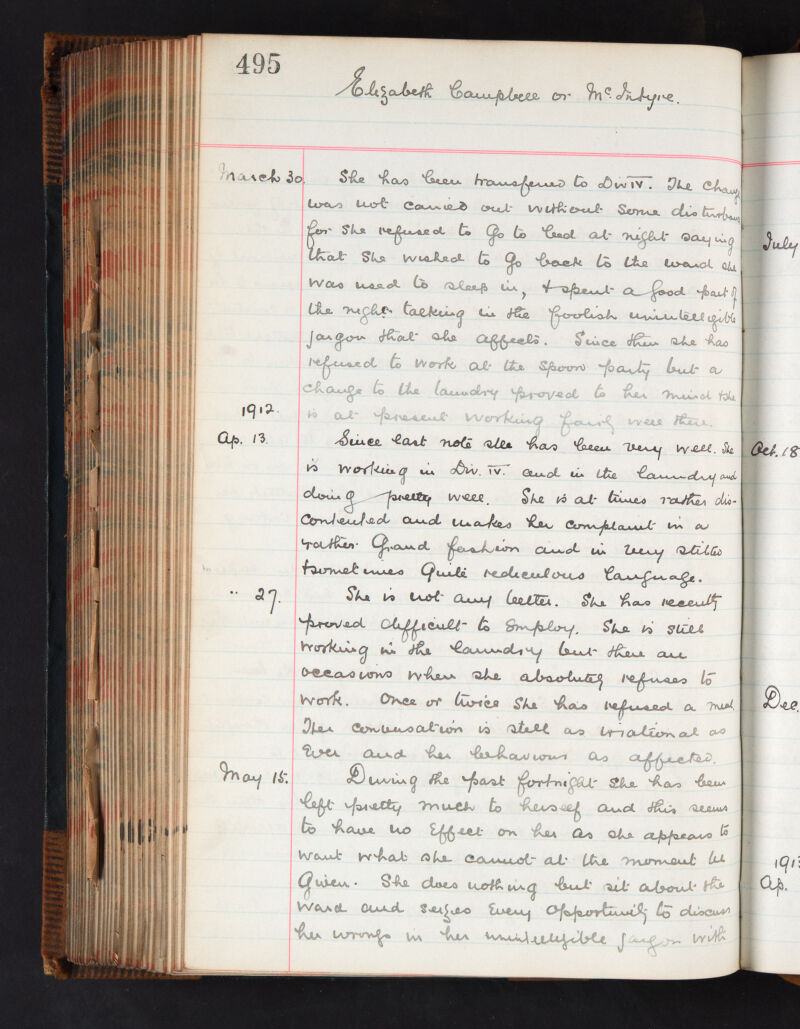 495
Elizabeth Campbell or McIntyre.
March 30. She has been transferred to Div IV. The change
was not carried out without some disturbance
for she refused to go to bed at night saying
that she wished to go back to the ward she
was used to sleep in, & spent a good part of
the night talking in the foolish unintelligible
jargon that she affects. Since then she has
refused to work at the spoon party but a
change to the laundry proved to her mind & she
is at present working fairly well there.
1912.
Ap. 13. Since last note she has been very well. She
is working in Div. IV. and in the laundry and
doing pretty well. She is at times rather dis-
contented and makes her complaint in a
rather grand fashion and in very stilted
& sometimes quite rediculous language.
" 27. She is not any better. She has recently
proved difficult to employ. She is still
working in the laundry but there are
occasions when she absolutely refuses to
work. Once or twice she has refused a meal.
Her conversation is still as irrational as
ever and her behaviour as affected.
May 15. During the past fortnight she has been
left pretty much to herself and this seems
to have no effect on her as she appears to
want what she cannot at the moment be
given. She does nothing but sit about the
ward and seizes every opportunity to discuss
her wrongs in her unintelligible jargon with
July
Oct. 18
Dec.
191
Ap.